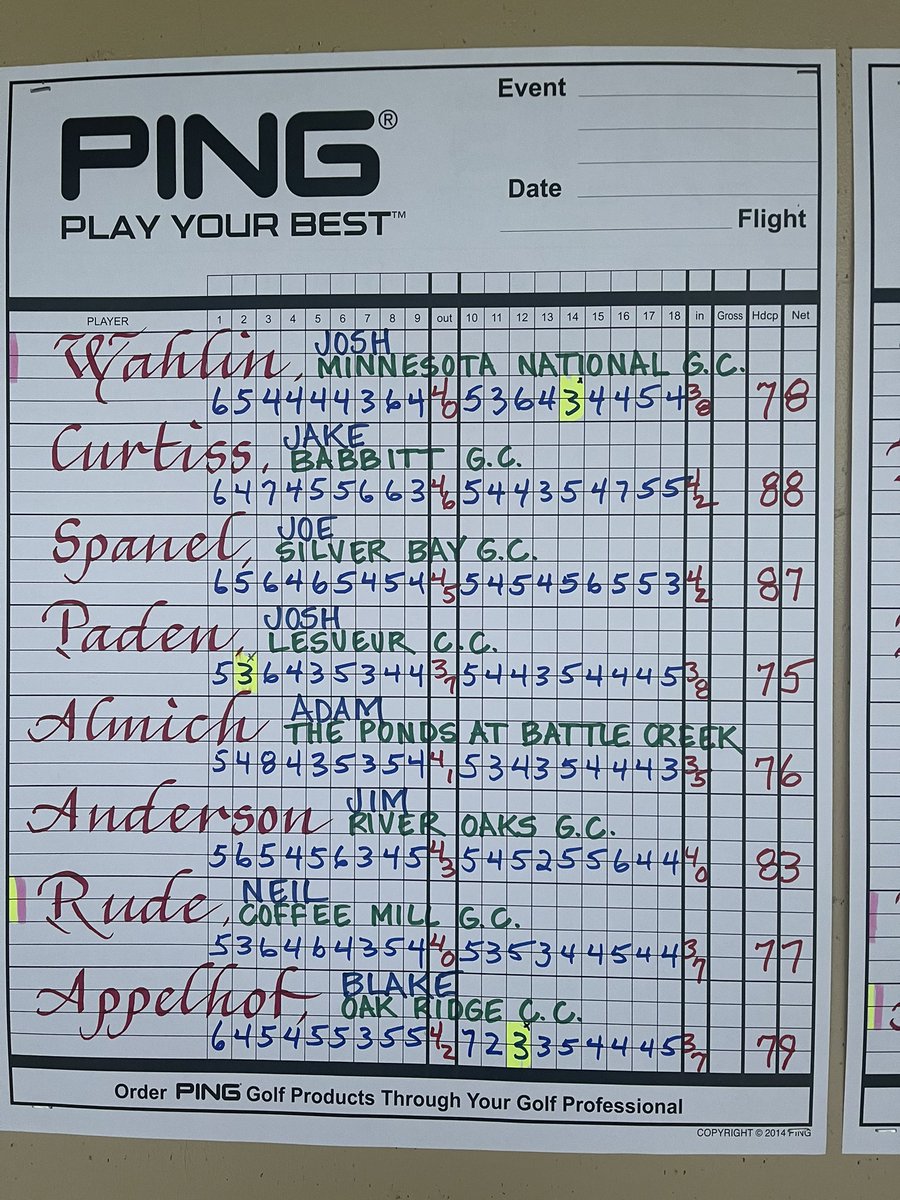 Event
PING®
Date
PLAY YOUR BEST™
Flight
PLAYER 1 2 3 4 5 6 7 8 9 out 10 11 12 13 14 15 16 17 18 in Gross Hdcp Net
Wahlin, JOSH
MINNESOTA NATIONAL G.C.
6 5 4 4 4 4 3 6 4 40 5 3 6 4 3 4 4 5 4 38 78
Curtiss, JAKE
BABBITT G.C.
6 4 7 4 5 5 6 6 3 46 5 4 4 3 5 4 7 5 5 42 88
Spanel, JOE
SILVER BAY G.C.
6 5 6 4 6 5 4 5 4 45 5 4 5 4 5 6 5 5 3 42 87
Paden, JOSH
LESUEUR C.C.
5 3 6 4 3 5 3 4 4 37 5 4 4 3 5 4 4 4 5 38 75
Almich ADAM
THE PONDS AT BATTLE CREEK
5 4 8 4 3 5 3 5 4 41 5 3 4 3 5 4 4 4 3 35 76
Anderson JIM
RIVER OAKS G.C.
5 6 5 4 5 6 3 4 5 43 5 4 5 2 5 5 6 4 4 40 83
Rude, NEIL
COFFEE MILL G.C.
5 3 6 4 6 4 3 5 4 40 5 3 5 3 4 4 5 4 4 37 77
Appelhof, BLAKE
OAK RIDGE C.C.
6 4 5 4 5 5 3 5 5 42 7 2 3 3 5 4 4 4 5 37 79
Order PING Golf Products Through Your Golf Professional
COPYRIGHT © 2014 PING